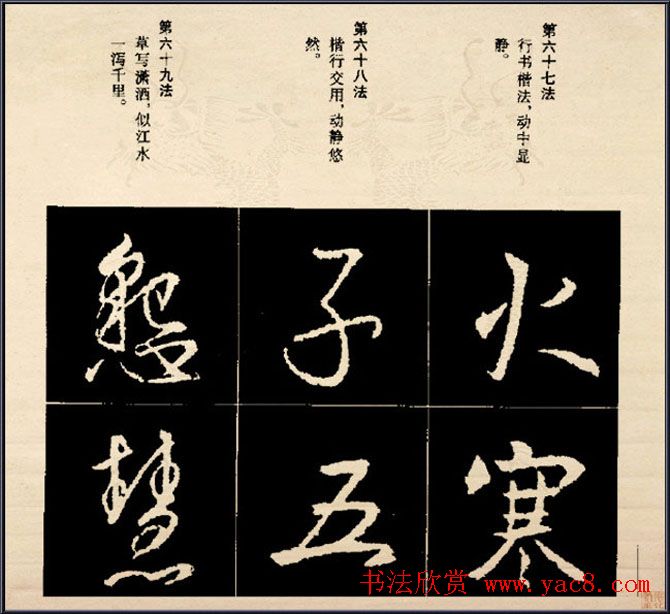 第六十七法
行书楷法，动中显
静。
第六十八法
楷行交用，动静悠
然。
第六十九法
草写潇洒，似江水
一泻千里。
火
寒
子
五
慧
书法欣赏 www.yac8.com